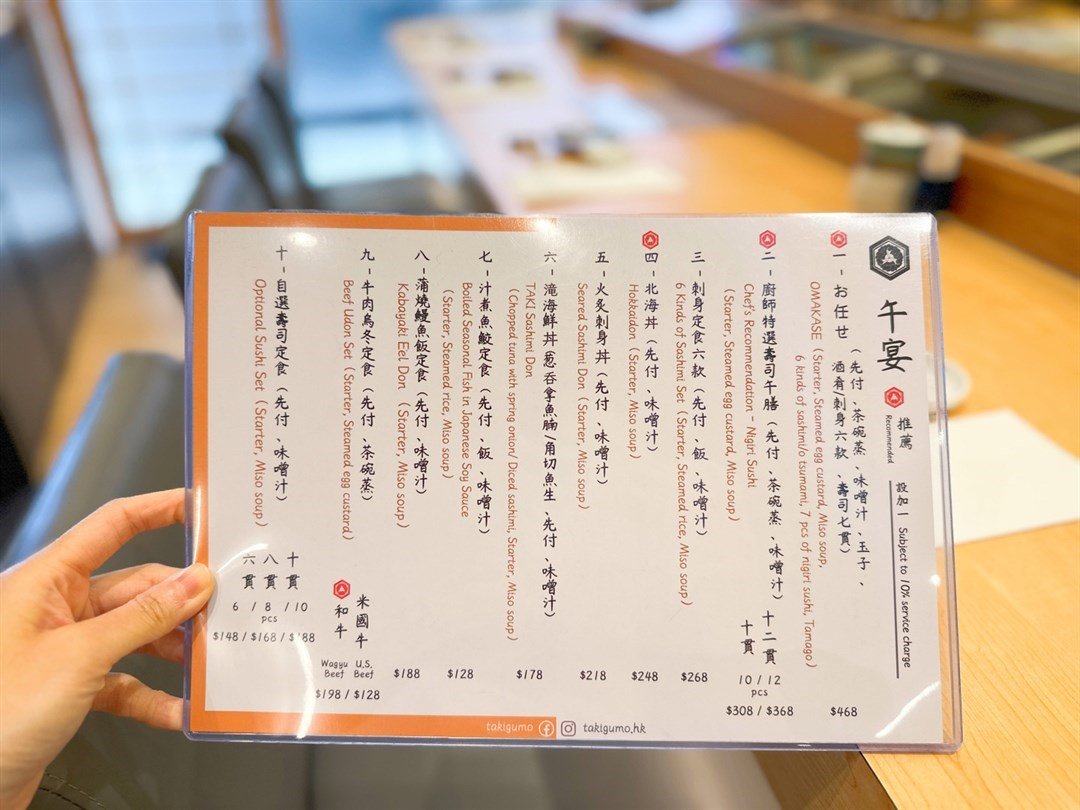 午宴
推薦
Recommended
設加一 Subject to 10% service charge
一 - お任せ (先付、茶碗蒸、味噌汁、玉子、
酒肴/刺身六款、壽司七貫)
OMAKASE (Starter, Steamed egg custard, Miso soup,
6 kinds of sashimi/o tsumami, 7 pcs of nigiri sushi, Tamago)
$468
二 - 廚師特選壽司午膳 (先付、茶碗蒸、味噌汁)
十貫 十二貫
Chef's Recommendation - Nigiri Sushi
(Starter, Steamed egg custard, Miso soup)
10 / 12
pcs
$308 / $368
三 - 刺身定食六款 (先付、飯、味噌汁)
6 Kinds of Sashimi Set (Starter, Steamed rice, Miso soup)
$268
四 - 北海丼 (先付、味噌汁)
Hokkaidon (Starter, Miso soup)
$248
五 - 火炙刺身丼 (先付、味噌汁)
Seared Sashimi Don (Starter, Miso soup)
$218
六 - 滝海鮮丼 (葱吞拿魚腩/角切魚生、先付、味噌汁)
TAKI Sashimi Don
(Chopped tuna with spring onion/ Diced sashimi, Starter, Miso soup)
$178
七 - 汁煮魚鮫定食 (先付、飯、味噌汁)
Boiled Seasonal Fish in Japanese Soy Sauce
(Starter, Steamed rice, Miso soup)
$128
八 - 蒲燒鰻魚飯定食 (先付、味噌汁)
Kabayaki Eel Don (Starter, Miso soup)
$188
九 - 牛肉烏冬定食 (先付、茶碗蒸)
Beef Udon Set (Starter, Steamed egg custard)
和牛 米國牛
Wagyu Beef U.S. Beef
$198 / $128
十 - 自選壽司定食 (先付、味噌汁)
Optional Sushi Set (Starter, Miso soup)
六貫 八貫 十貫
6 / 8 / 10
pcs
$148 / $168 / $188
takigumo takigumo.hk